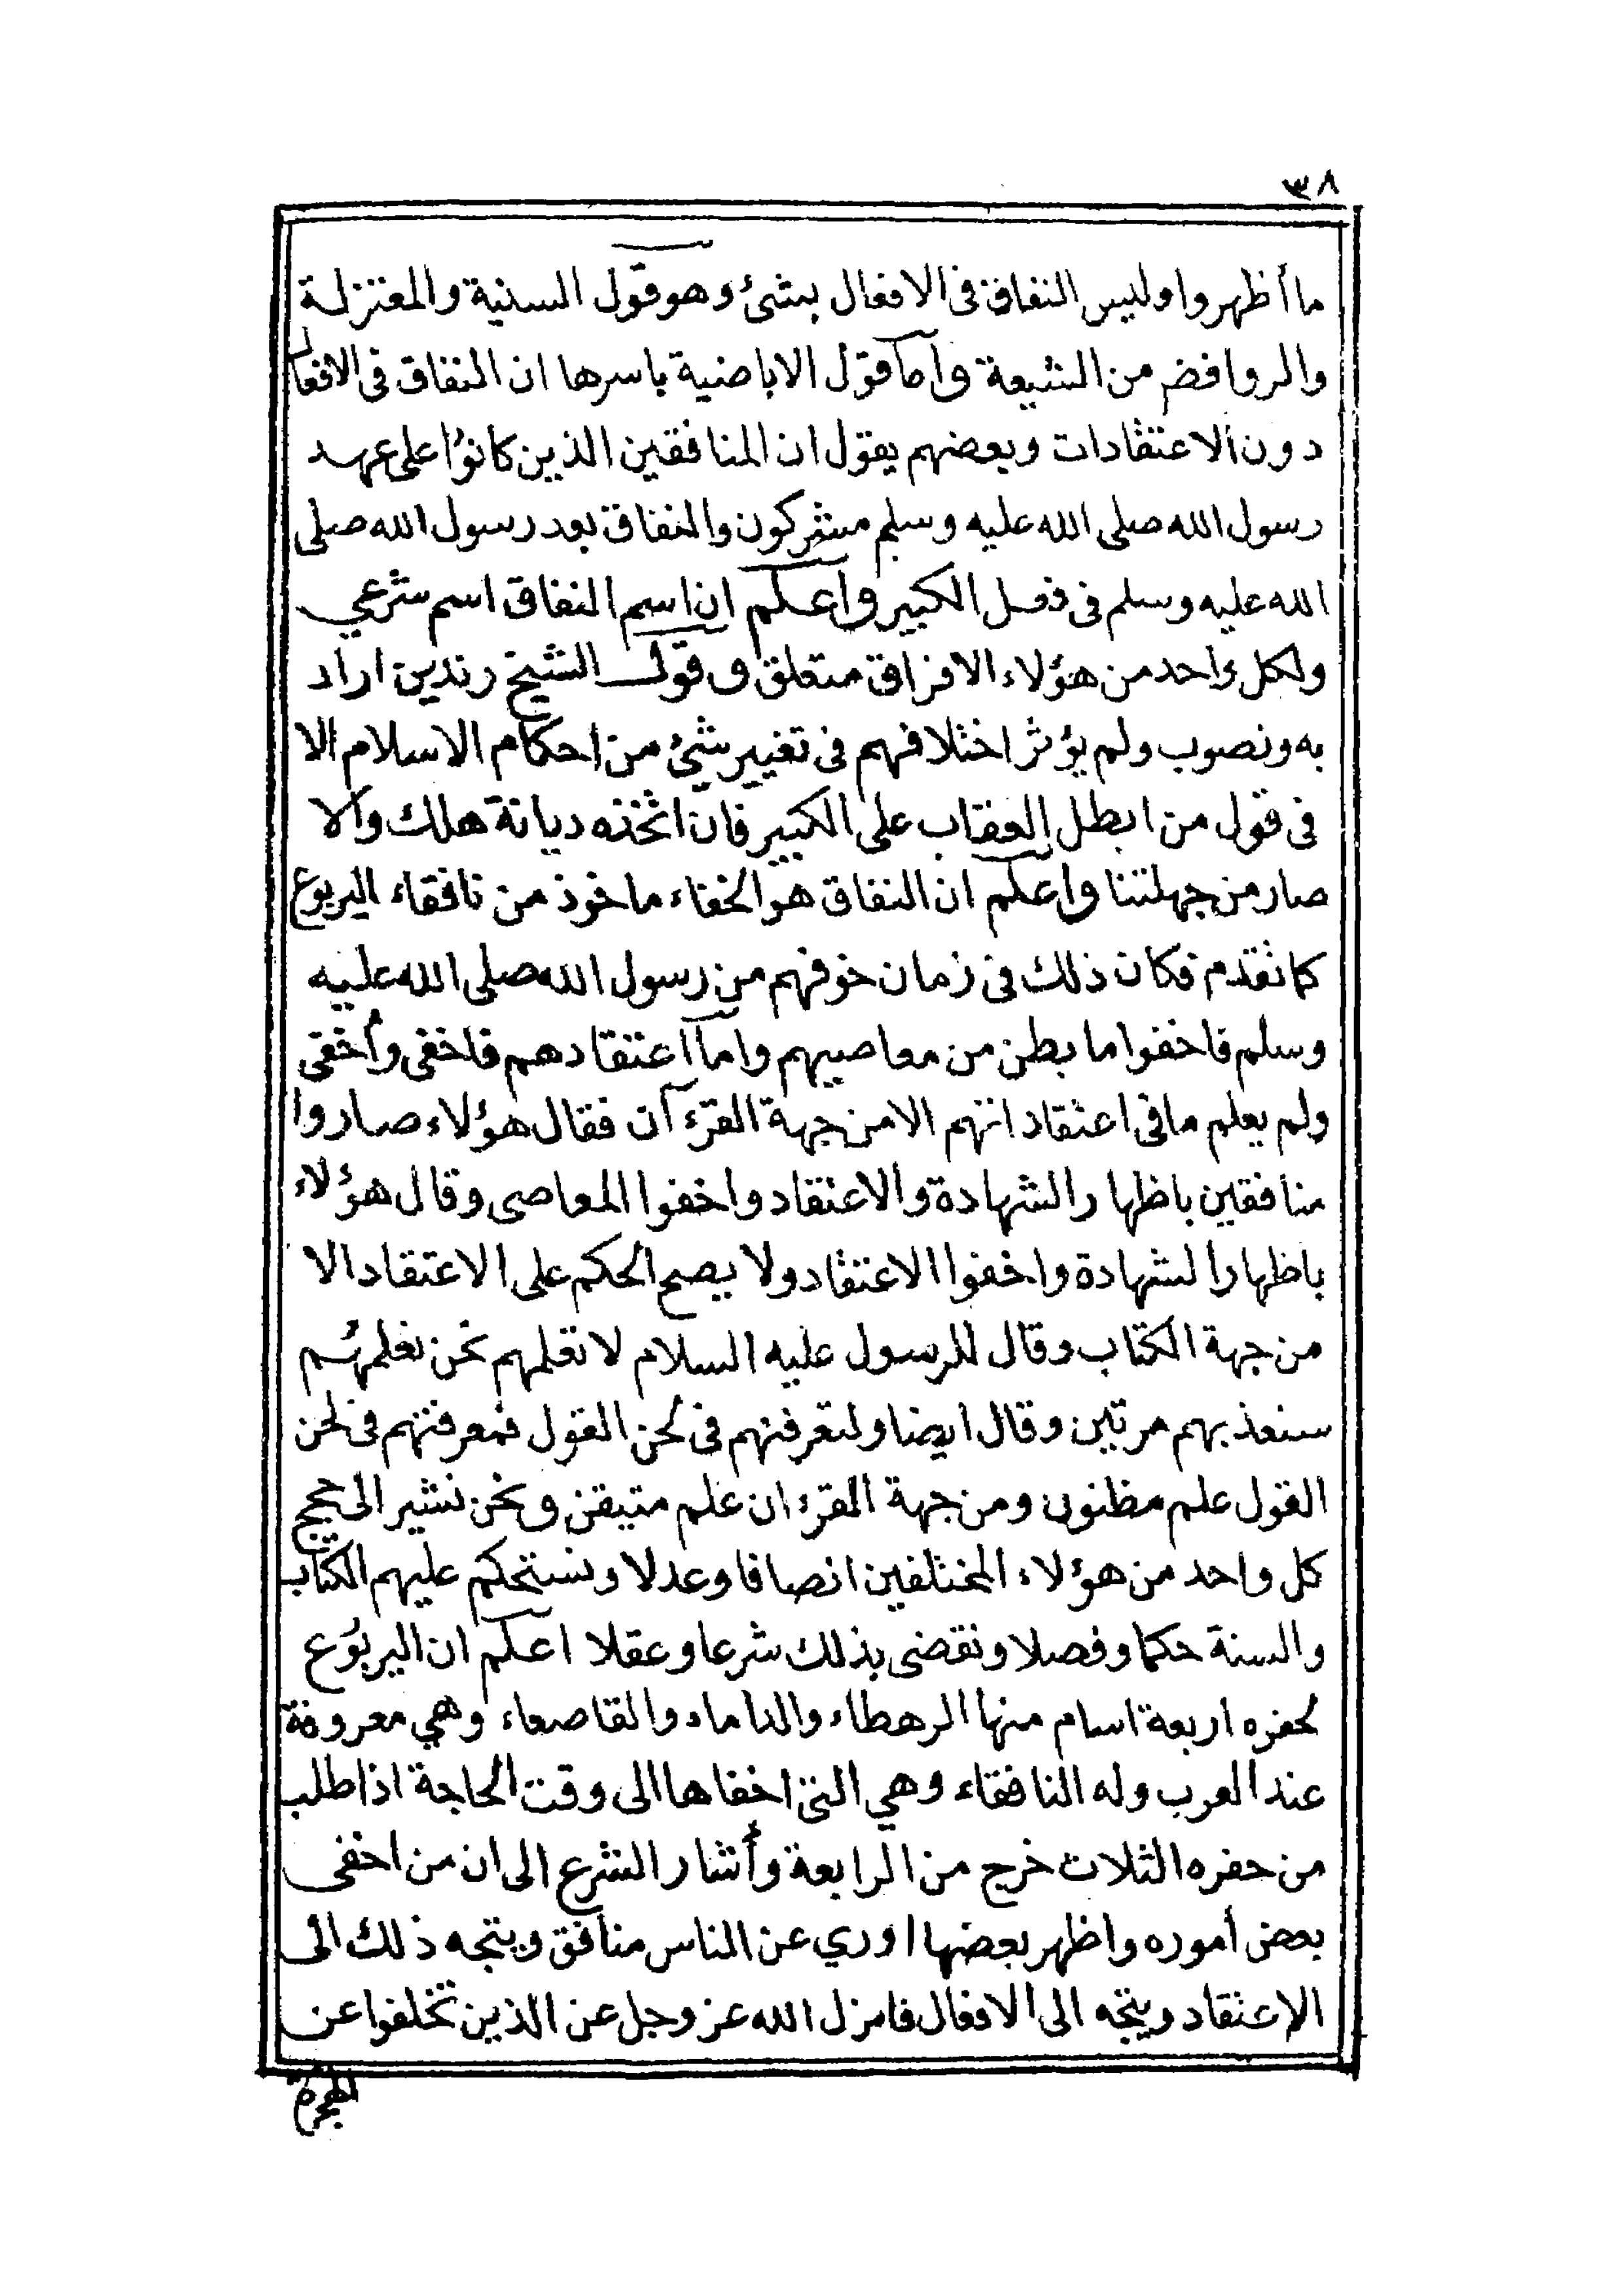 ٣٨
ما أظهروا وليس النفاق فى الافعال بشئ وهو قول السنية والمعتزلة
والروافض من الشيعة وأما قول الاباضية باسرها ان النفاق فى الافعال
دون الاعتقادات وبعضهم يقول ان المنافقين الذين كانوا على عهد
رسول الله صلى الله عليه وسلم مشركون والنفاق بعد رسول الله صلى
الله عليه وسلم فى فعل الكبير واعلم ان اسم النفاق اسم شرعي
ولكل واحد من هؤلاء الافراق متعلق وقول الشيخ رندين اراد
به ونصوب ولم يؤثر اختلافهم فى تغيير شئ من احكام الاسلام الا
فى قول من ابطل العقاب على الكبير فان اتخذه ديانة هلك والا
صار من جهلتنا واعلم ان النفاق هو الخفاء ماخوذ من نافقاء اليربوع
كما تقدم فكان ذلك فى زمان خوفهم من رسول الله صلى الله عليه
وسلم فاخفوا ما بطن من معاصيهم واما اعتقادهم فاخفى وأخفى
ولم يعلم ما فى اعتقاد انهم الا من جهة القرءآن فقال هؤلاء صاروا
منافقين باظهار الشهادة والاعتقاد واخفوا المعاصى وقال هؤلاء
باظهار الشهادة واخفوا الاعتقاد ولا يصح الحكم على الاعتقاد الا
من جهة الكتاب وقال للرسول عليه السلام لا تعلمهم نحن نعلمهم
سنعذبهم مرتين وقال ايضا ولتعرفنهم فى لحن القول فمعرفتهم فى لحن
القول علم مظنون ومن جهة القرءان علم متيقن ونحن نشير الى حجج
كل واحد من هؤلاء المختلفين انصافا وعدلا ونستحكم عليهم الكتاب
والسنة حكما وفصلا ونقضى بذلك شرعا وعقلا اعلم ان اليربوع
لحفره اربعة اسام منها الرهطاء والداماء والقاصعاء وهي معروفة
عند العرب وله النافقاء وهي التى اخفاها الى وقت الحاجة اذا طلب
من حفره الثلاث خرج من الرابعة وأشار الشرع الى ان من اخفى
بعض أموره واظهر بعضها اوري عن الناس منافق ويتجه ذلك الى
الاعتقاد ويتجه الى الافعال فانزل الله عز وجل عن الذين تخلفوا عن
الهجرة